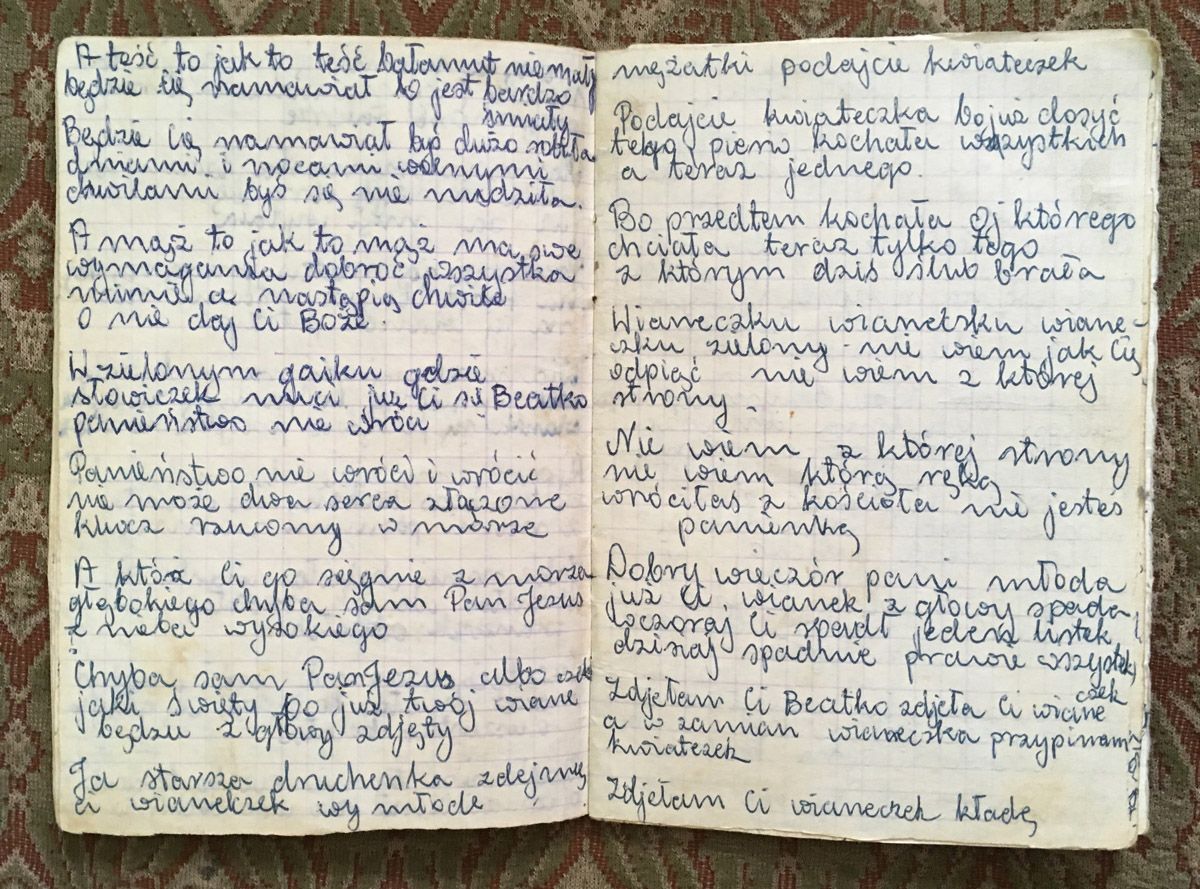 A teść to jak to teść bałamut nie mały
będzie cię namawiał to jest bardzo
śmiały
Będzie Cię namawiał byś dużo robiła
dniami i nocami wolnymi
chwilami byś się nie nudziła.
A mąż to jak to mąż ma swe
wymagania dobroć wszystka
minie a nastąpią chwile
o nie daj Ci Boże.
W zielonym gaiku gdzie
słowiczek nuci już Ci się Beatko
panieństwo nie wróci
Panieństwo nie wróci i wrócić
nie może dwa serca złączone
klucz rzucony w morze
A któż Ci go sięgnie z morza
głębokiego chyba sam Pan Jezus
z nieba wysokiego
Chyba sam Pan Jezus albo
jaki święty bo już twój wiane
czek
będzie z głowy zdjęty
Ja starsza druchenka zdejmę
Ci wianeczek wy młode
mężatki podajcie kwiateczek
Podajcie kwiateczka bo już dosyć
tego pierw kochała wszystkich
a teraz jednego.
Bo przedtem kochała Oj którego
chciała teraz tylko tego
z którym dziś ślub brała
Wianeczku wianetsku wiane-
czku zielony nie wiem jak Cię
odpiąć nie wiem z której
strony.
Nie wiem z której strony
nie wiem którą ręką
wróciłaś z kościoła nie jesteś
panienką
Dobry wieczór pani młoda
już Ci wianek z głowy spada
wczoraj Ci spadł jeden listek
dzisiaj spadnie prawie wszystek
Zdjełam Ci Beatko zdjeła Ci wiane
czek
a w zamian wianeczka przypinam
kwiatezek
Zdjełam Ci wianeczek kładę